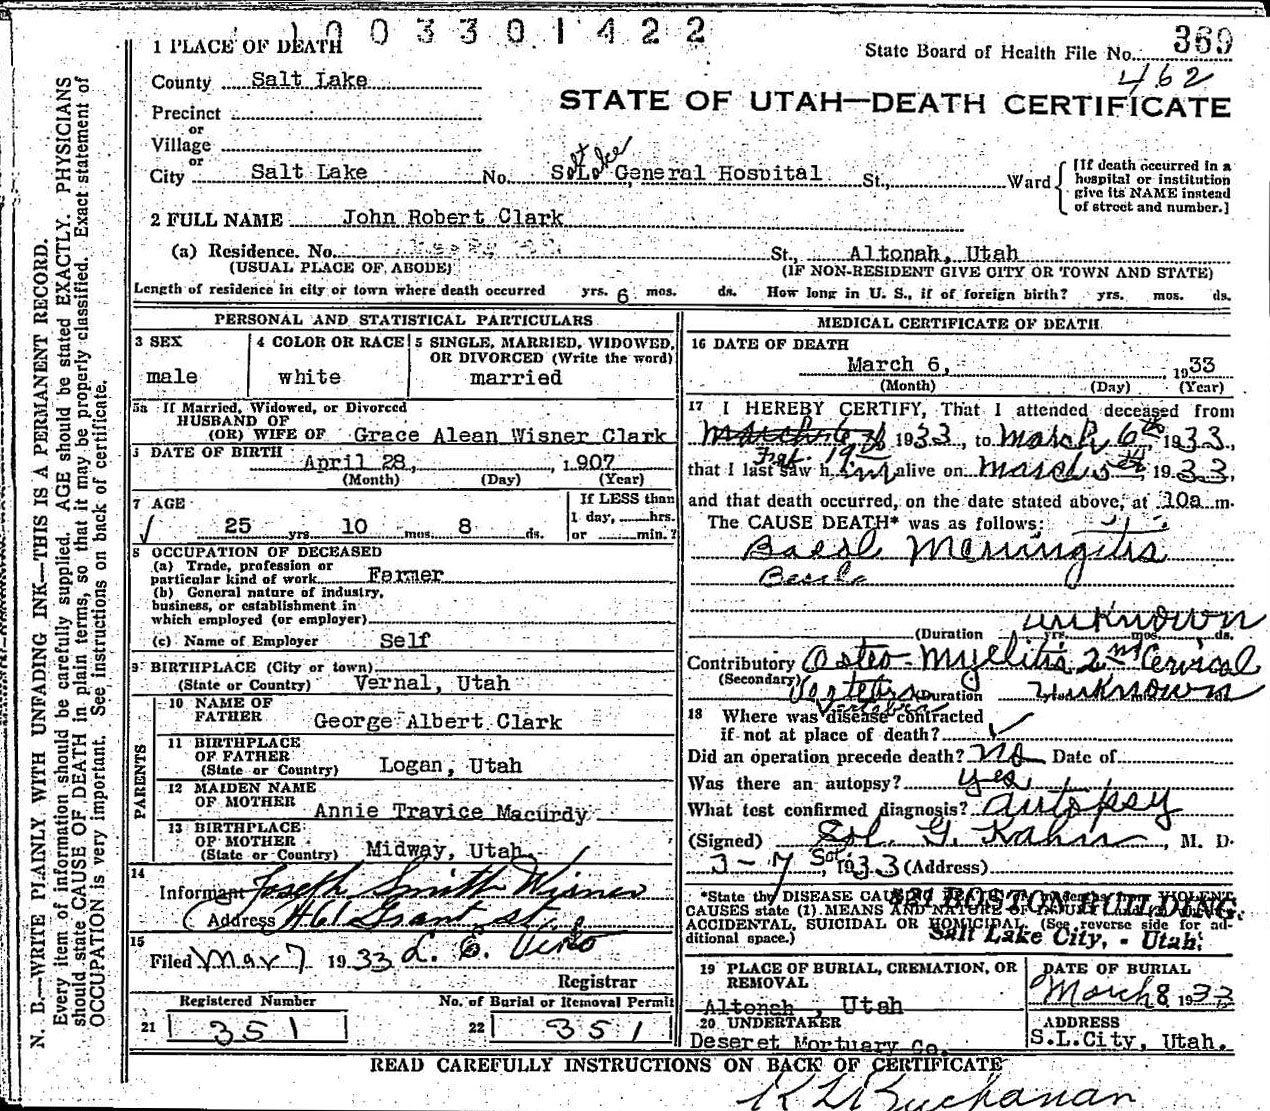 1 0 0 3 3 0 1 4 2 2
1 PLACE OF DEATH
State Board of Health File No. 369
462
County Salt Lake
STATE OF UTAH—DEATH CERTIFICATE
Precinct
or
Village
or
City Salt Lake No. Salt Lake General Hospital St., Ward
[If death occurred in a
hospital or institution
give its NAME instead
of street and number.]
2 FULL NAME John Robert Clark
(a) Residence. No. St., Altonah, Utah
(USUAL PLACE OF ABODE) (IF NON-RESIDENT GIVE CITY OR TOWN AND STATE)
Length of residence in city or town where death occurred yrs. 6 mos. ds. How long in U. S., if of foreign birth? yrs. mos. ds.
PERSONAL AND STATISTICAL PARTICULARS
3 SEX
male
4 COLOR OR RACE
white
5 SINGLE, MARRIED, WIDOWED,
OR DIVORCED (Write the word)
married
5a If Married, Widowed, or Divorced
HUSBAND OF
(OR) WIFE OF Grace Alean Wisner Clark
DATE OF BIRTH
April 28, 1907
(Month) (Day) (Year)
7 AGE
25 yrs 10 mos 8 ds.
If LESS than
1 day, hrs.
or min.?
8 OCCUPATION OF DECEASED
(a) Trade, profession or
particular kind of work Farmer
(b) General nature of industry,
business, or establishment in
which employed (or employer)
(c) Name of Employer Self
9 BIRTHPLACE (City or town)
(State or Country) Vernal, Utah
PARENTS
10 NAME OF
FATHER George Albert Clark
11 BIRTHPLACE
OF FATHER
(State or Country) Logan, Utah
12 MAIDEN NAME
OF MOTHER Annie Travice Macurdy
13 BIRTHPLACE
OF MOTHER
(State or Country) Midway, Utah
14
Informant Joseph Smith Wisner
(Address 461 Grant St.
15
Filed Mar 7 1933 L. E.
Registrar
Registered Number
21 351
No. of Burial or Removal Permit
22 351
MEDICAL CERTIFICATE OF DEATH
16 DATE OF DEATH
March 6, 1933
(Month) (Day) (Year)
17 I HEREBY CERTIFY, That I attended deceased from
March 6th 1933, to March 6th 1933,
19th
that I last saw him alive on March 5th 1933,
and that death occurred, on the date stated above, at 10a m.
The CAUSE DEATH* was as follows:
Basal Meningitis
unknown
(Duration yrs. mos. ds.
Contributory Osteo-Myelitis 2nd Cervical
(Secondary) (Duration unknown
Vertebra
18 Where was disease contracted
if not at place of death?
Did an operation precede death? no Date of
Was there an autopsy? yes
What test confirmed diagnosis? autopsy
(Signed) Sol. G. Kahn, M. D.
3-7, 1933 (Address)
*State the DISEASE CAUSING DEATH, or in deaths from VIOLENT
CAUSES state (1) MEANS AND NATURE OF INJURY
ACCIDENTAL, SUICIDAL OR HOMICIDAL. (See reverse side for ad-
ditional space.)
BOSTON BUILDING.
Salt Lake City, - Utah.
19 PLACE OF BURIAL, CREMATION, OR
REMOVAL
Altonah, Utah
DATE OF BURIAL
March 8 1933
20 UNDERTAKER
Deseret Mortuary Co.
ADDRESS
S.L.City, Utah.
READ CAREFULLY INSTRUCTIONS ON BACK OF CERTIFICATE
Buchanan
N. B.—WRITE PLAINLY WITH UNFADING INK—THIS IS A PERMANENT RECORD.
Every item of information should be carefully supplied. AGE should be stated EXACTLY. PHYSICIANS
should state CAUSE OF DEATH in plain terms, so that it may be properly classified. Exact statement of
OCCUPATION is very important. See instructions on back of certificate.